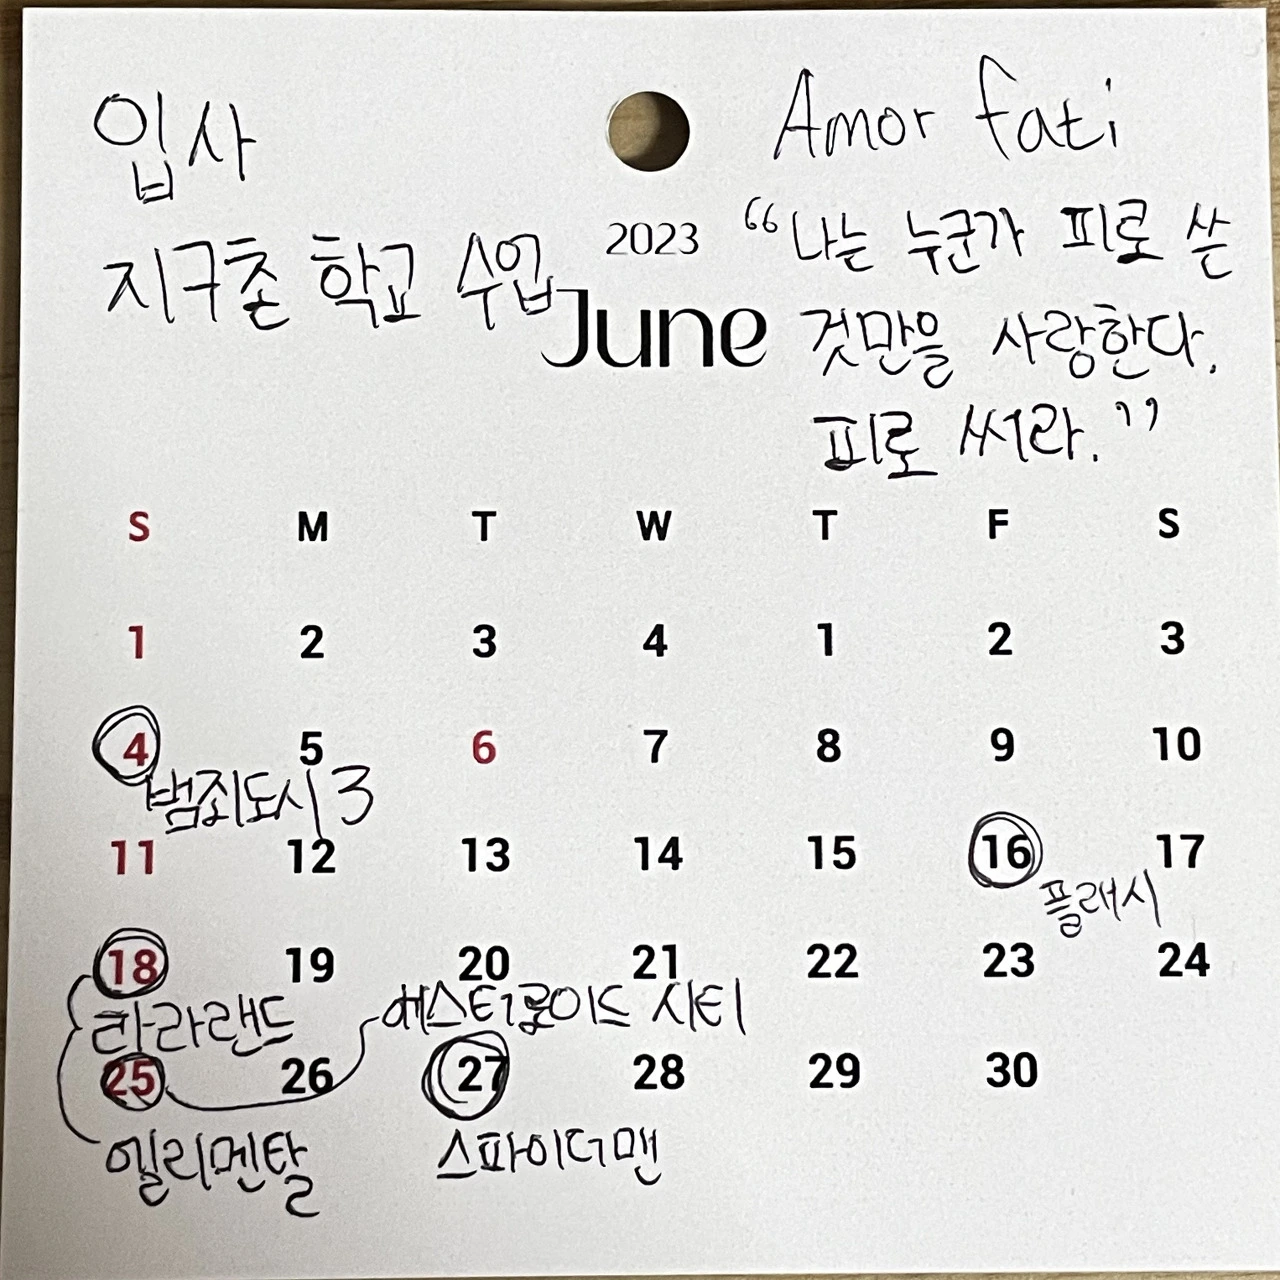 입사
지구촌 학교 수업
Amor fati
“나는 누군가 피로 쓴
것만을 사랑한다.
피로 써라.”
2023
June
S M T W T F S
1 2 3 4 1 2 3
4 5 6 7 8 9 10
범죄도시 3
11 12 13 14 15 16 17
플래시
18 19 20 21 22 23 24
라라랜드
에스터로이드 시티
25 26 27 28 29 30
엘리멘탈
스파이더맨